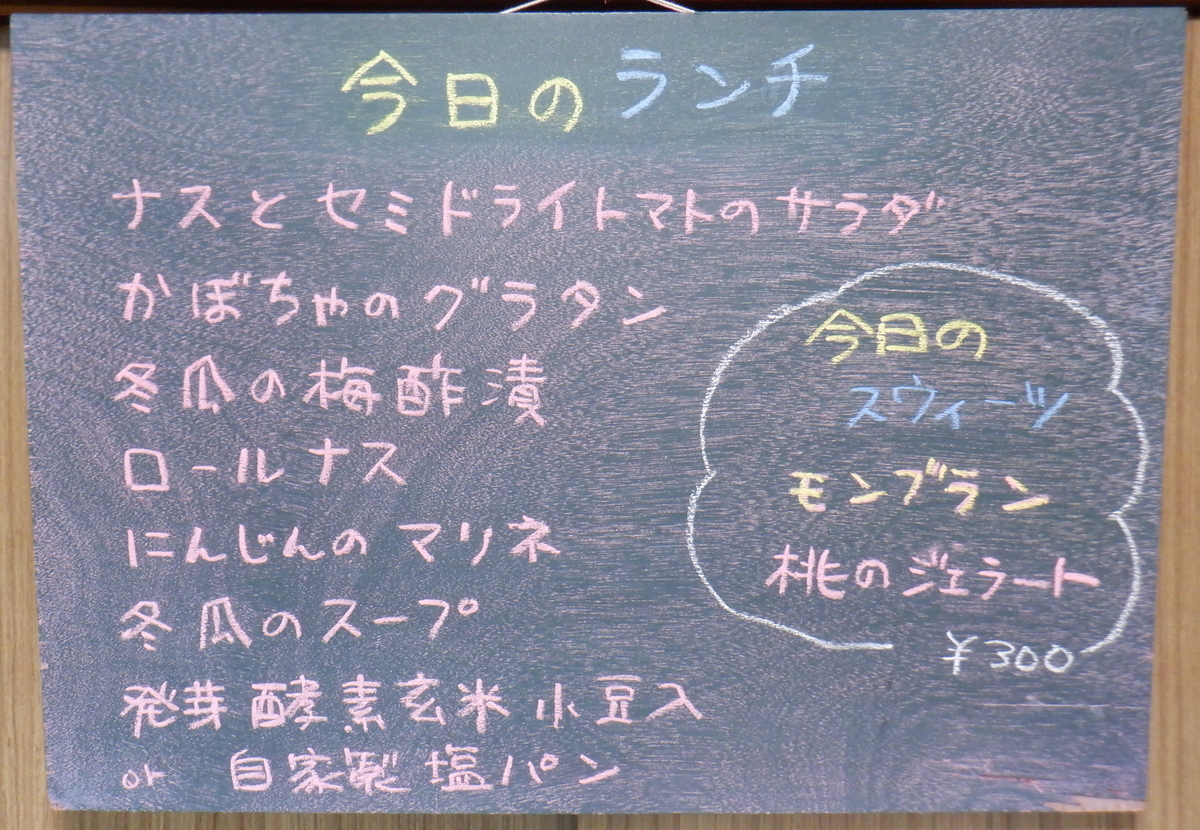 今日のランチ
ナスとセミドライトマトのサラダ
かぼちゃのグラタン
冬瓜の梅酢漬
ロールナス
にんじんのマリネ
冬瓜のスープ
発芽酵素玄米小豆入
or 自家製塩パン
今日の
スウィーツ
モンブラン
桃のジェラート
¥300